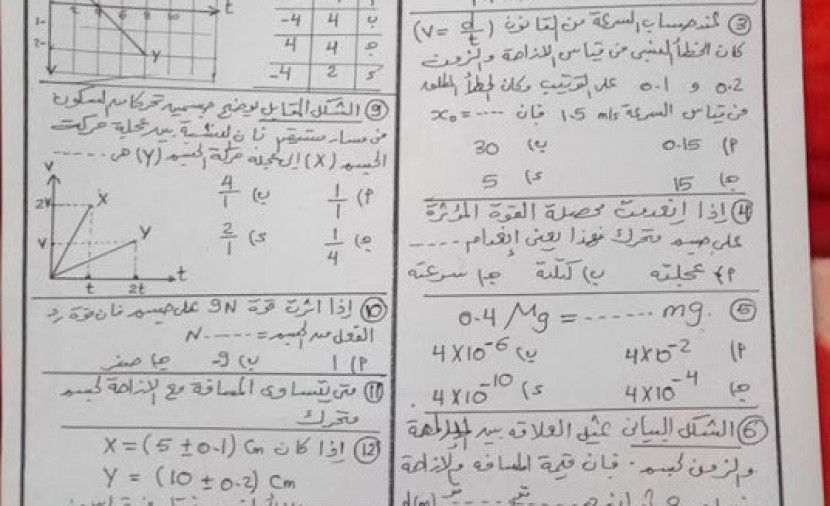 ③ عند حساب السرعة من القانون (V = d/t)
كان الخطأ النسبي من قياس الازاحة والزمن
0.2 و 0.1 على الترتيب وكان الخطأ المطلق
من قياس السرعة 1.5 m/s فان x₀ = ----
أ) 0.15 ب) 30
ج) 15 د) 5
④ إذا انعدمت محصلة القوة المؤثرة
على جسم متحرك فهذا يعني إنعدام ----
أ) عجلته ب) كتلته ج) سرعته
⑤ 0.4 Mg = ------ mg.
أ) 4X10⁻² ب) 4X10⁻⁶
ج) 4X10⁻⁴ د) 4X10⁻¹⁰
⑥ الشكل البياني يمثل العلاقة بين
والزمن لجسم . فان قيمة المسافة والازاحة
d(m)
t
2 4 6 8 10
2-
Y
-4 4 ب
4 4 ج
-4 2 د
⑨ الشكل المقابل يوضح جسمين تحركا من السكون
من مسار مستقيم فان النسبة بين عجلة حركة
الجسم (X) إلى عجلة حركة الجسم (Y) هى -----
أ) 1/1 ب) 4/1
ج) 1/4 د) 2/1
V
2V
V
X
Y
t
2t
t
⑩ إذا اثرت قوة 9N على جسم فان قوة رد
الفعل من الجسم = ----- N
أ) 1 ب) 9- ج) صفر
⑪ متى تتساوى المسافة مع الازاحة لجسم
متحرك
⑫ إذا كان X = (5 ± 0.1) Cm
Y = (10 ± 0.2) Cm